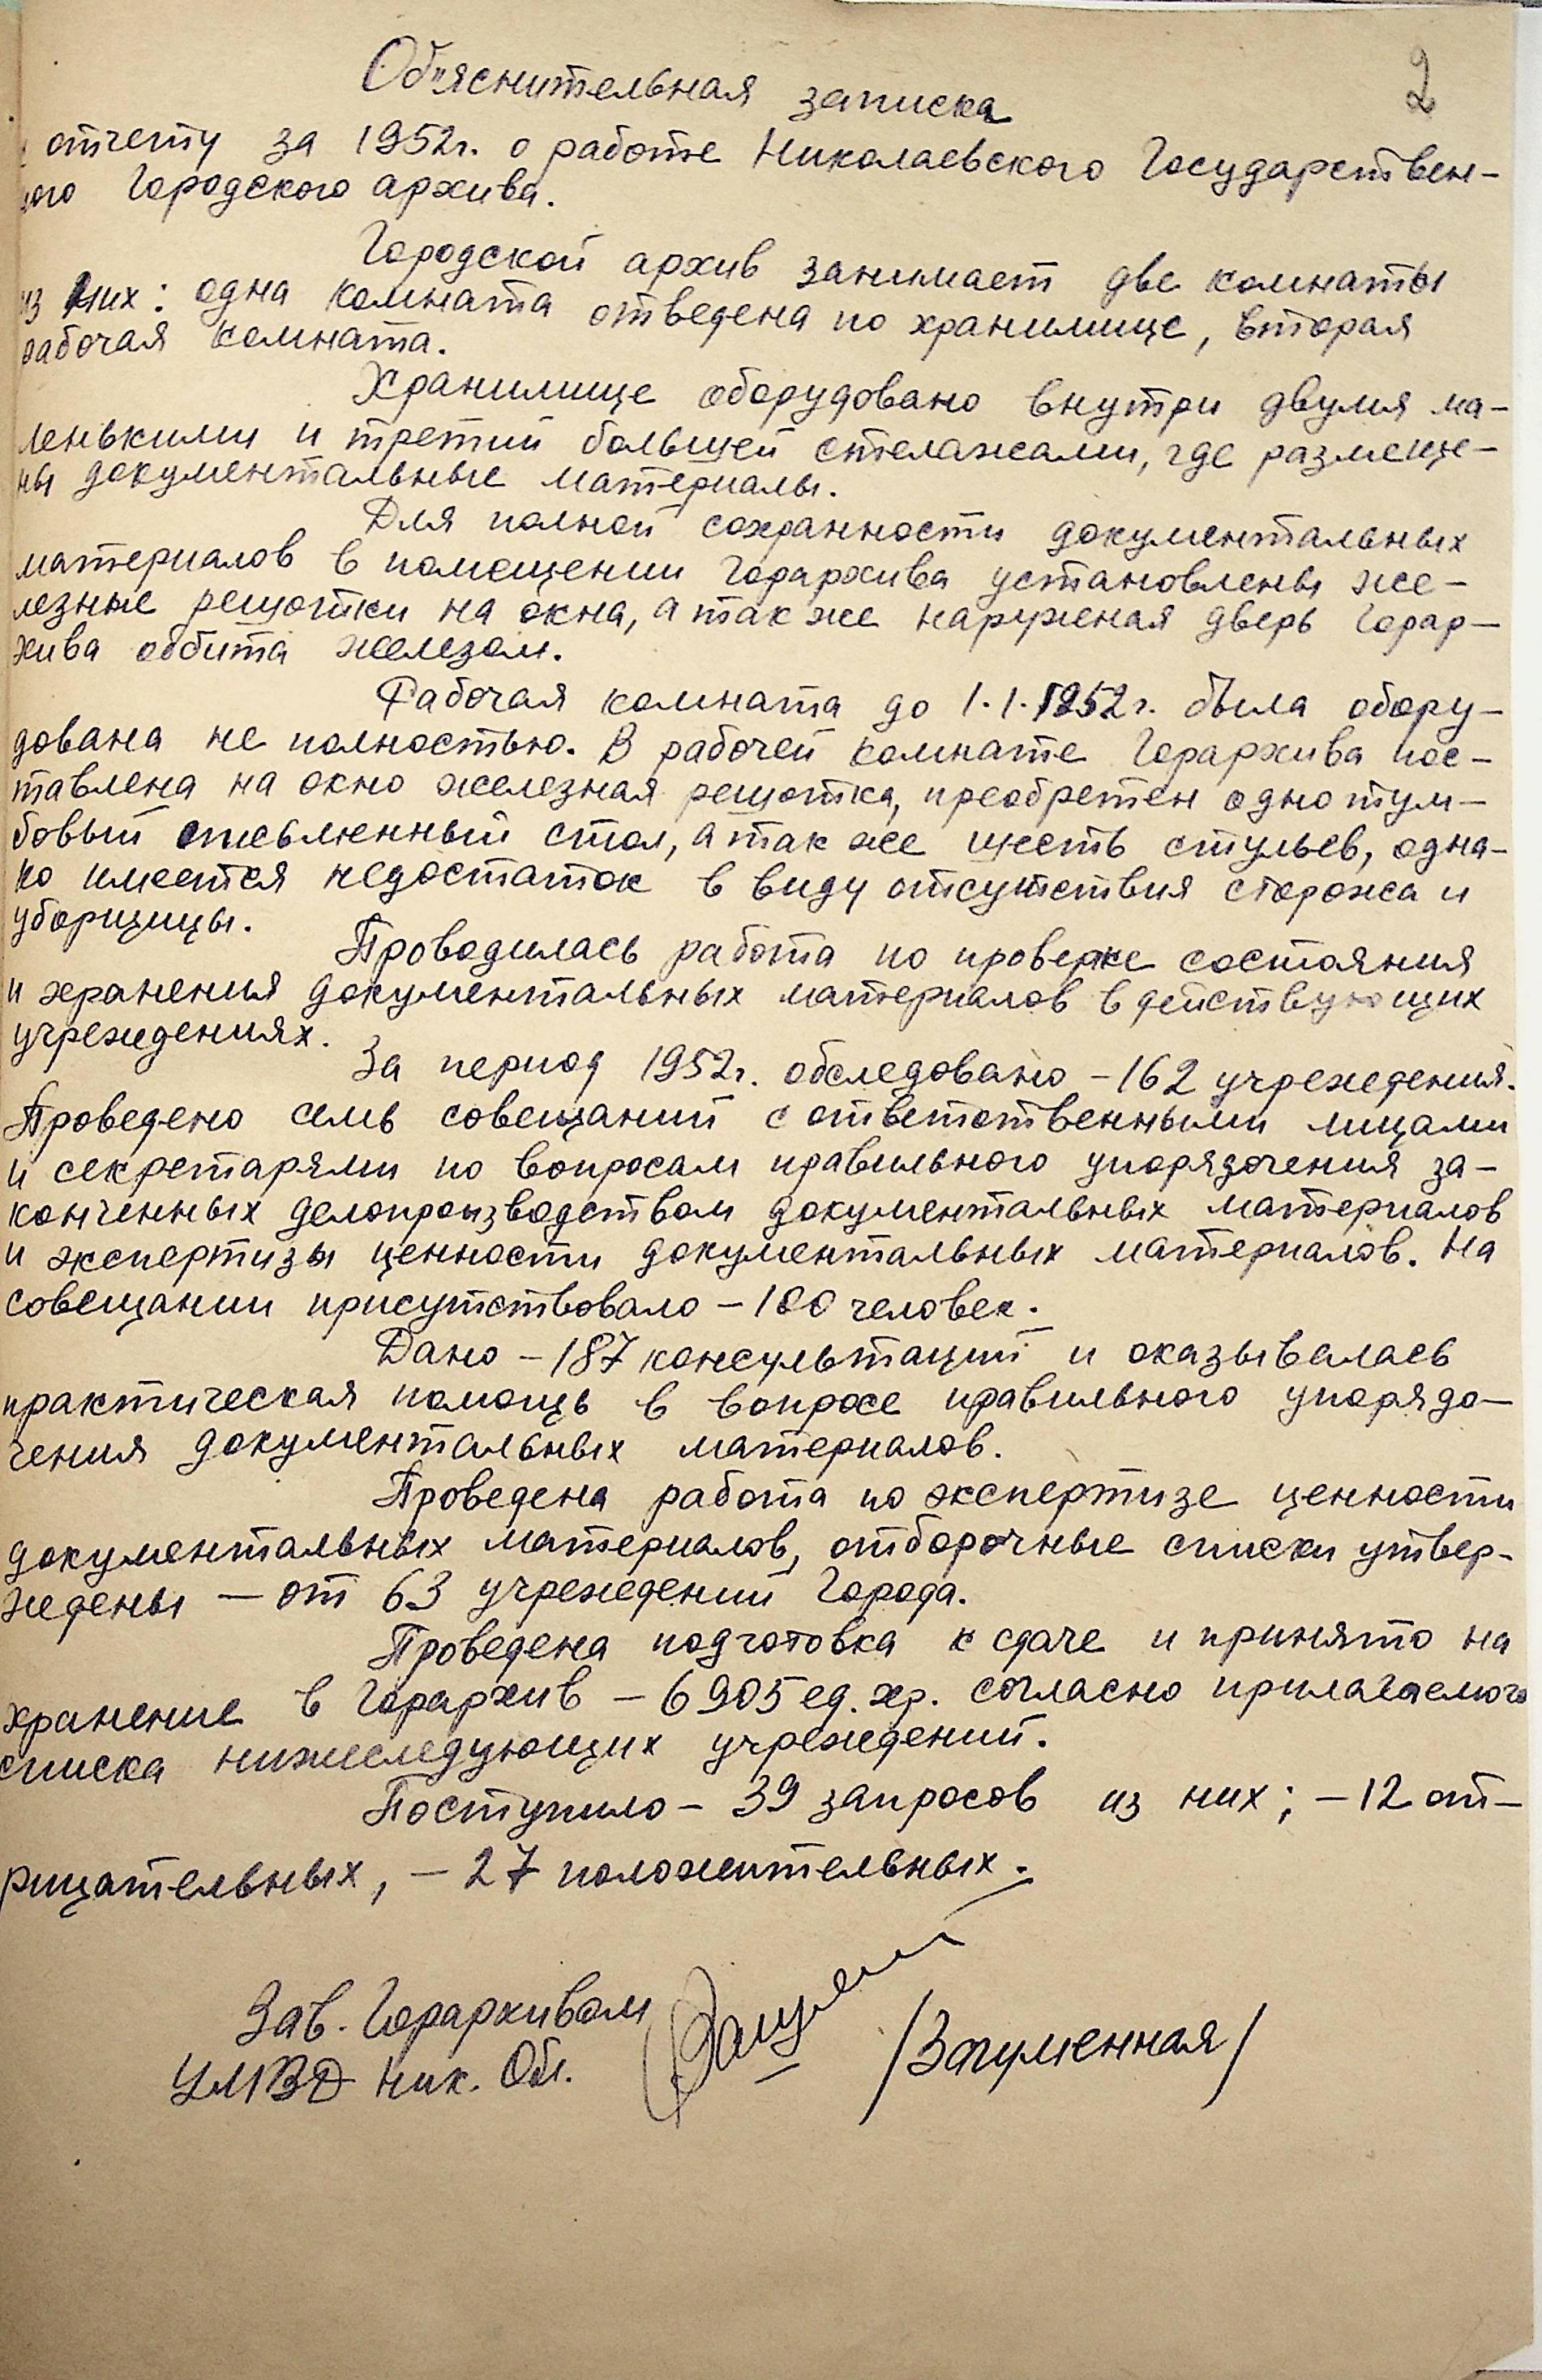 Об"яснительная записка
2
к отчету за 1952г. о работе Николаевского Государствен-
ного Городского архива.
Городской архив занимает две комнаты
из них: одна комната отведена по хранилище, вторая
рабочая комната.
Хранилище оборудовано внутри двумя ма-
ленькими и третий большей стелажами, где размеще-
ны документальные материалы.
Для полной сохранности документальных
материалов в помещении Горархива установлены же-
лезные решотки на окна, а так же наружная дверь Горар-
хива оббита железом.
Рабочая комната до 1.1.1952г. была обору-
дована не полностью. В рабочей комнате Горархива пос-
тавлена на окно железная решотка, преобретен одно тум-
бовый стол, а так же шесть стульев, одна-
ко имеется недостаток в виду отсутствия сторожа и
уборщицы.
Проводилась работа по проверке состояния
и хранения документальных материалов в действующих
учреждениях.
За период 1952г. обследовано - 162 учреждения.
Проведено семь совещаний с ответственными лицами
и секретарями по вопросам правильного упорядочения за-
конченных делопроизводством документальных материалов
и экспертизы ценности документальных материалов. На
совещании присутствовало - 100 человек.
Дано - 187 консультаций и оказывалась
практическая помощь в вопросе правильного упорядо-
чения документальных материалов.
Проведена работа по экспертизе ценности
документальных материалов, отборочные списки утвер-
ждены - от 63 учреждений Города.
Проведена подготовка к сдаче и принято на
хранение в Горархив - 6905 ед. хр. согласно прилагаемого
списка нижеследующих учреждений.
Поступило - 39 запросов из них; - 12 от-
рицательных, - 27 положительных.
Зав. Горархивом
УМВД Ник. Обл.
/Загуменная/